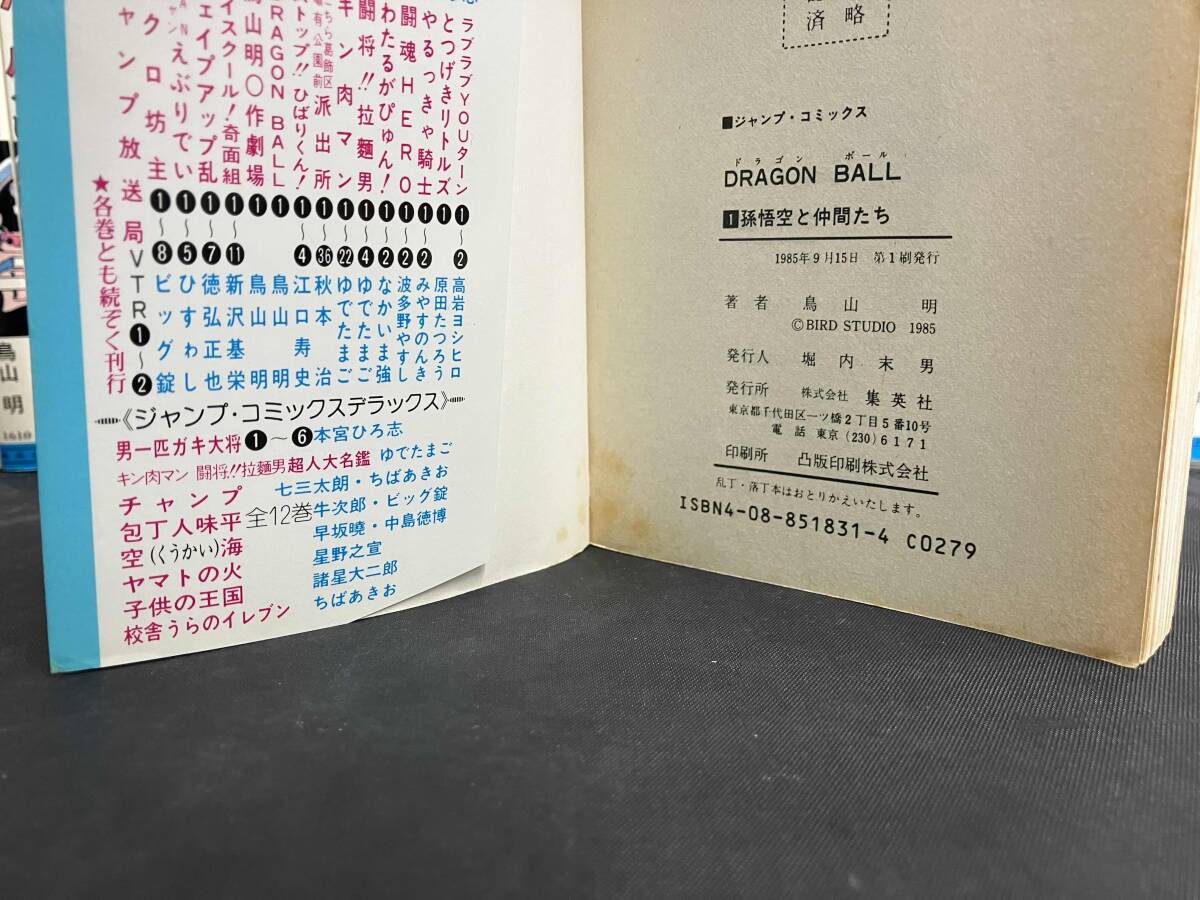 ラブラブYOUターン ❶〜❷ 高岩ヨシヒロ
とつげきリトルズ ❶ 原田たつろう
やるっきゃ騎士 ❶〜❷ みやすのんき
闘魂HERO ❶〜❷ 波多野やすし
わたるがぴゅん! ❶〜❷ なかいま強
闘将!!拉麺男 ❶〜❹ ゆでたまご
キン肉マン ❶〜㉒ ゆでたまご
こちら葛飾区
有公園前派出所 ❶〜㊱ 秋本治
ストップ!!ひばりくん! ❶〜❹ 江口寿史
DRAGON BALL ❶ 鳥山明
鳥山明〇作劇場 ❶ 鳥山明
イスクール!奇面組 ❶〜⓫ 新沢基栄
ェイプアップ乱 ❶〜❼ 徳弘正也
えぶりでい ❶〜❺ ひすわし
クロ坊主 ❶〜❽ ビッグ錠
ャンプ放送局VTR❶〜❷
★各巻とも続ぞく刊行
《ジャンプ・コミックスデラックス》
男一匹ガキ大将❶〜❻本宮ひろ志
キン肉マン 闘将!!拉麺男 超人大名鑑 ゆでたまご
チャンプ 七三太朗・ちばあきお
包丁人味平 全12巻 牛次郎・ビッグ錠
空(くうかい)海 早坂暁・中島徳博
ヤマトの火 星野之宣
子供の王国 諸星大二郎
校舎うらのイレブン ちばあきお
略
済
■ジャンプ・コミックス
ドラゴン ボール
DRAGON BALL
1孫悟空と仲間たち
1985年9月15日 第1刷発行
著者 鳥山 明
©BIRD STUDIO 1985
発行人 堀内末男
発行所 株式会社 集英社
東京都千代田区一ツ橋2丁目5番10号
電話 東京(230)6171
印刷所 凸版印刷株式会社
乱丁・落丁本はおとりかえいたします。
ISBN4-08-851831-4 C0279
鳥山 明
1610